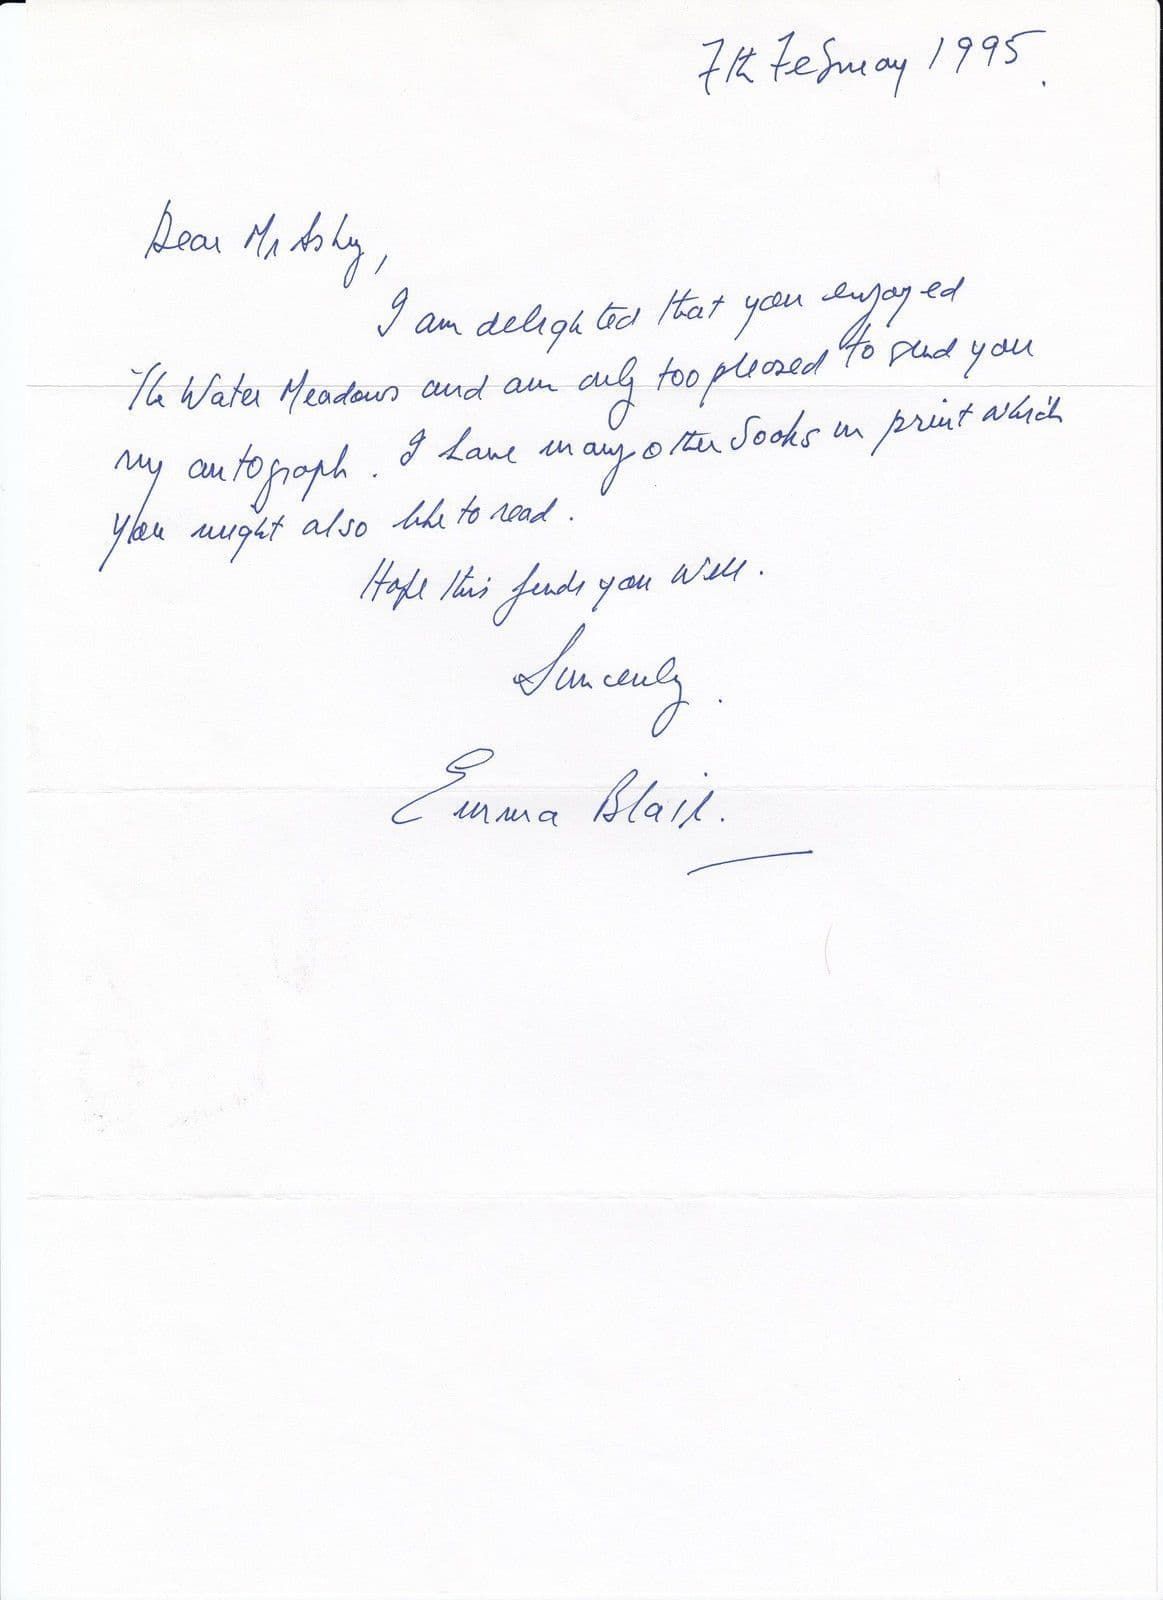 7th February 1995.
Dear Mr Ashby,
I am delighted that you enjoyed
The Water Meadows and am only too pleased to send you
my autograph. I have many other books in print which
you might also like to read.
Hope this finds you well.
Sincerely.
Emma Blair.